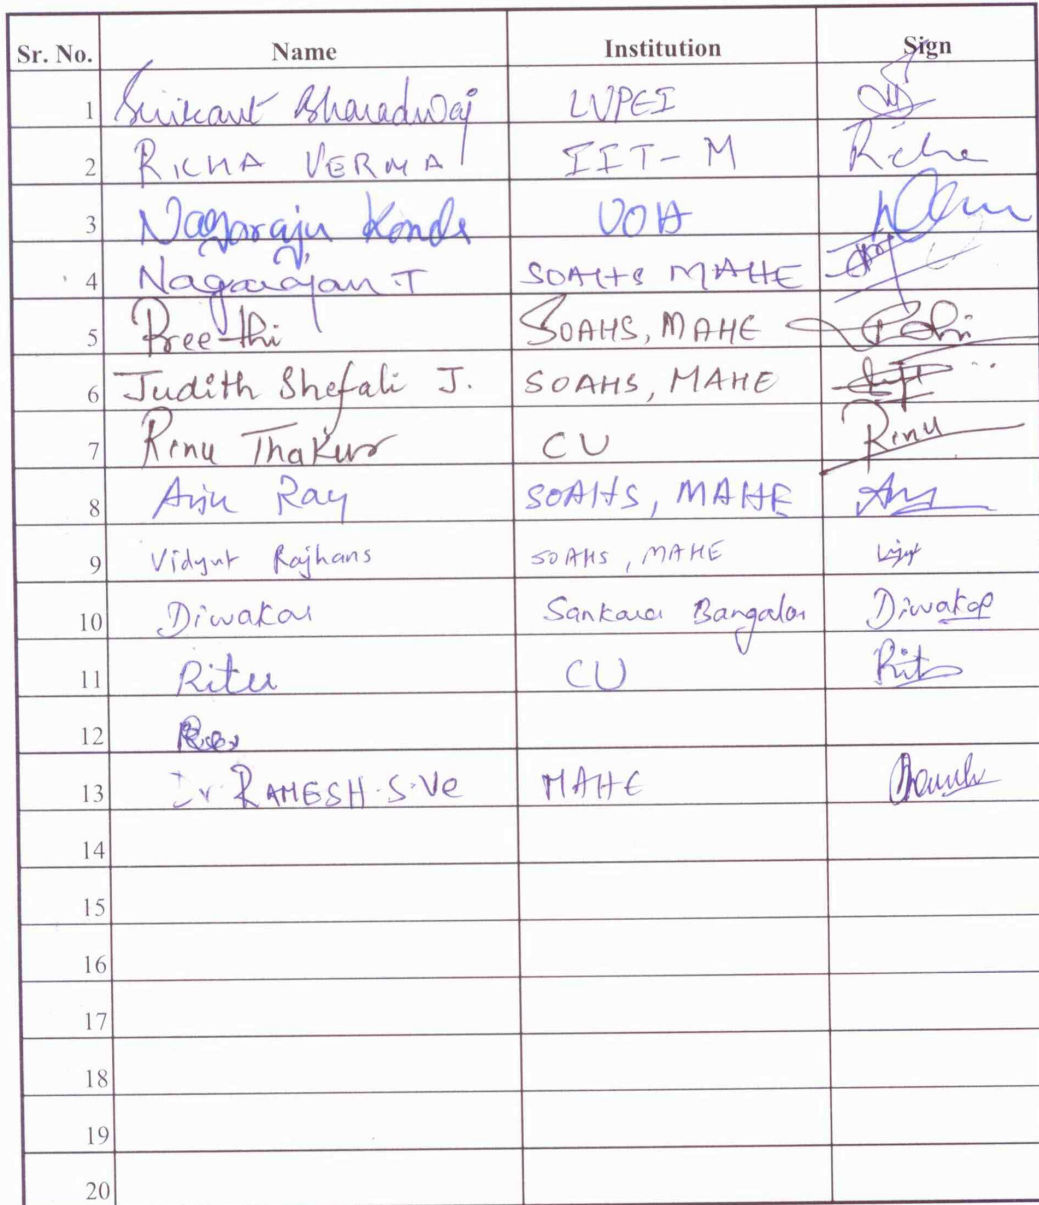 Sr. No. Name Institution Sign
1 Srikant Bharadwaj LVPEI
2 RICHA VERMA IIT-M Richa
3 Nagaraju Konda UOH
4 Nagarajan T SOAHS MAHE
5 Preethi SOAHS, MAHE
6 Judith Shefali J. SOAHS, MAHE
7 Renu Thakur CU Renu
8 Anju Ray SOAHS, MAHE
9 Vidyut Rajhans SOAHS, MAHE
10 Diwakar Sankara Bangalor Diwakar
11 Ritu CU Ritu
12
13 Dr. RAMESH.S.Ve MAHE
14
15
16
17
18
19
20